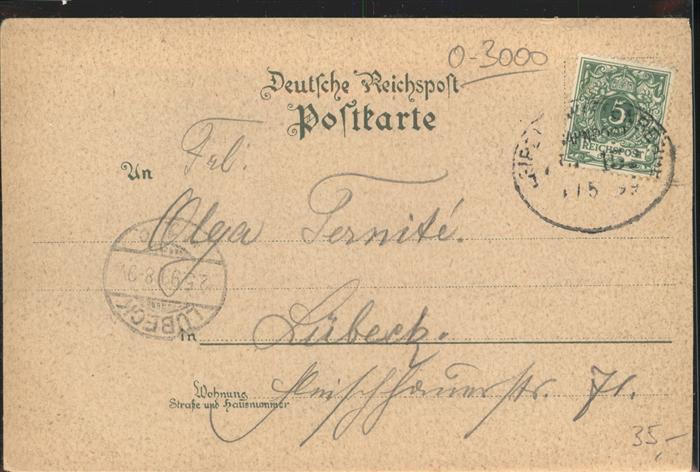 0-3000
Deutsche Reichspost
Postkarte
5
REICHSPOST
1 5 99
An Frl.
Olga Ternité.
LÜBECK
2.5.99 8-9V
in Lübeck.
Wohnung
Straße und Hausnummer
Fleischhauerstr. 71.
35,-